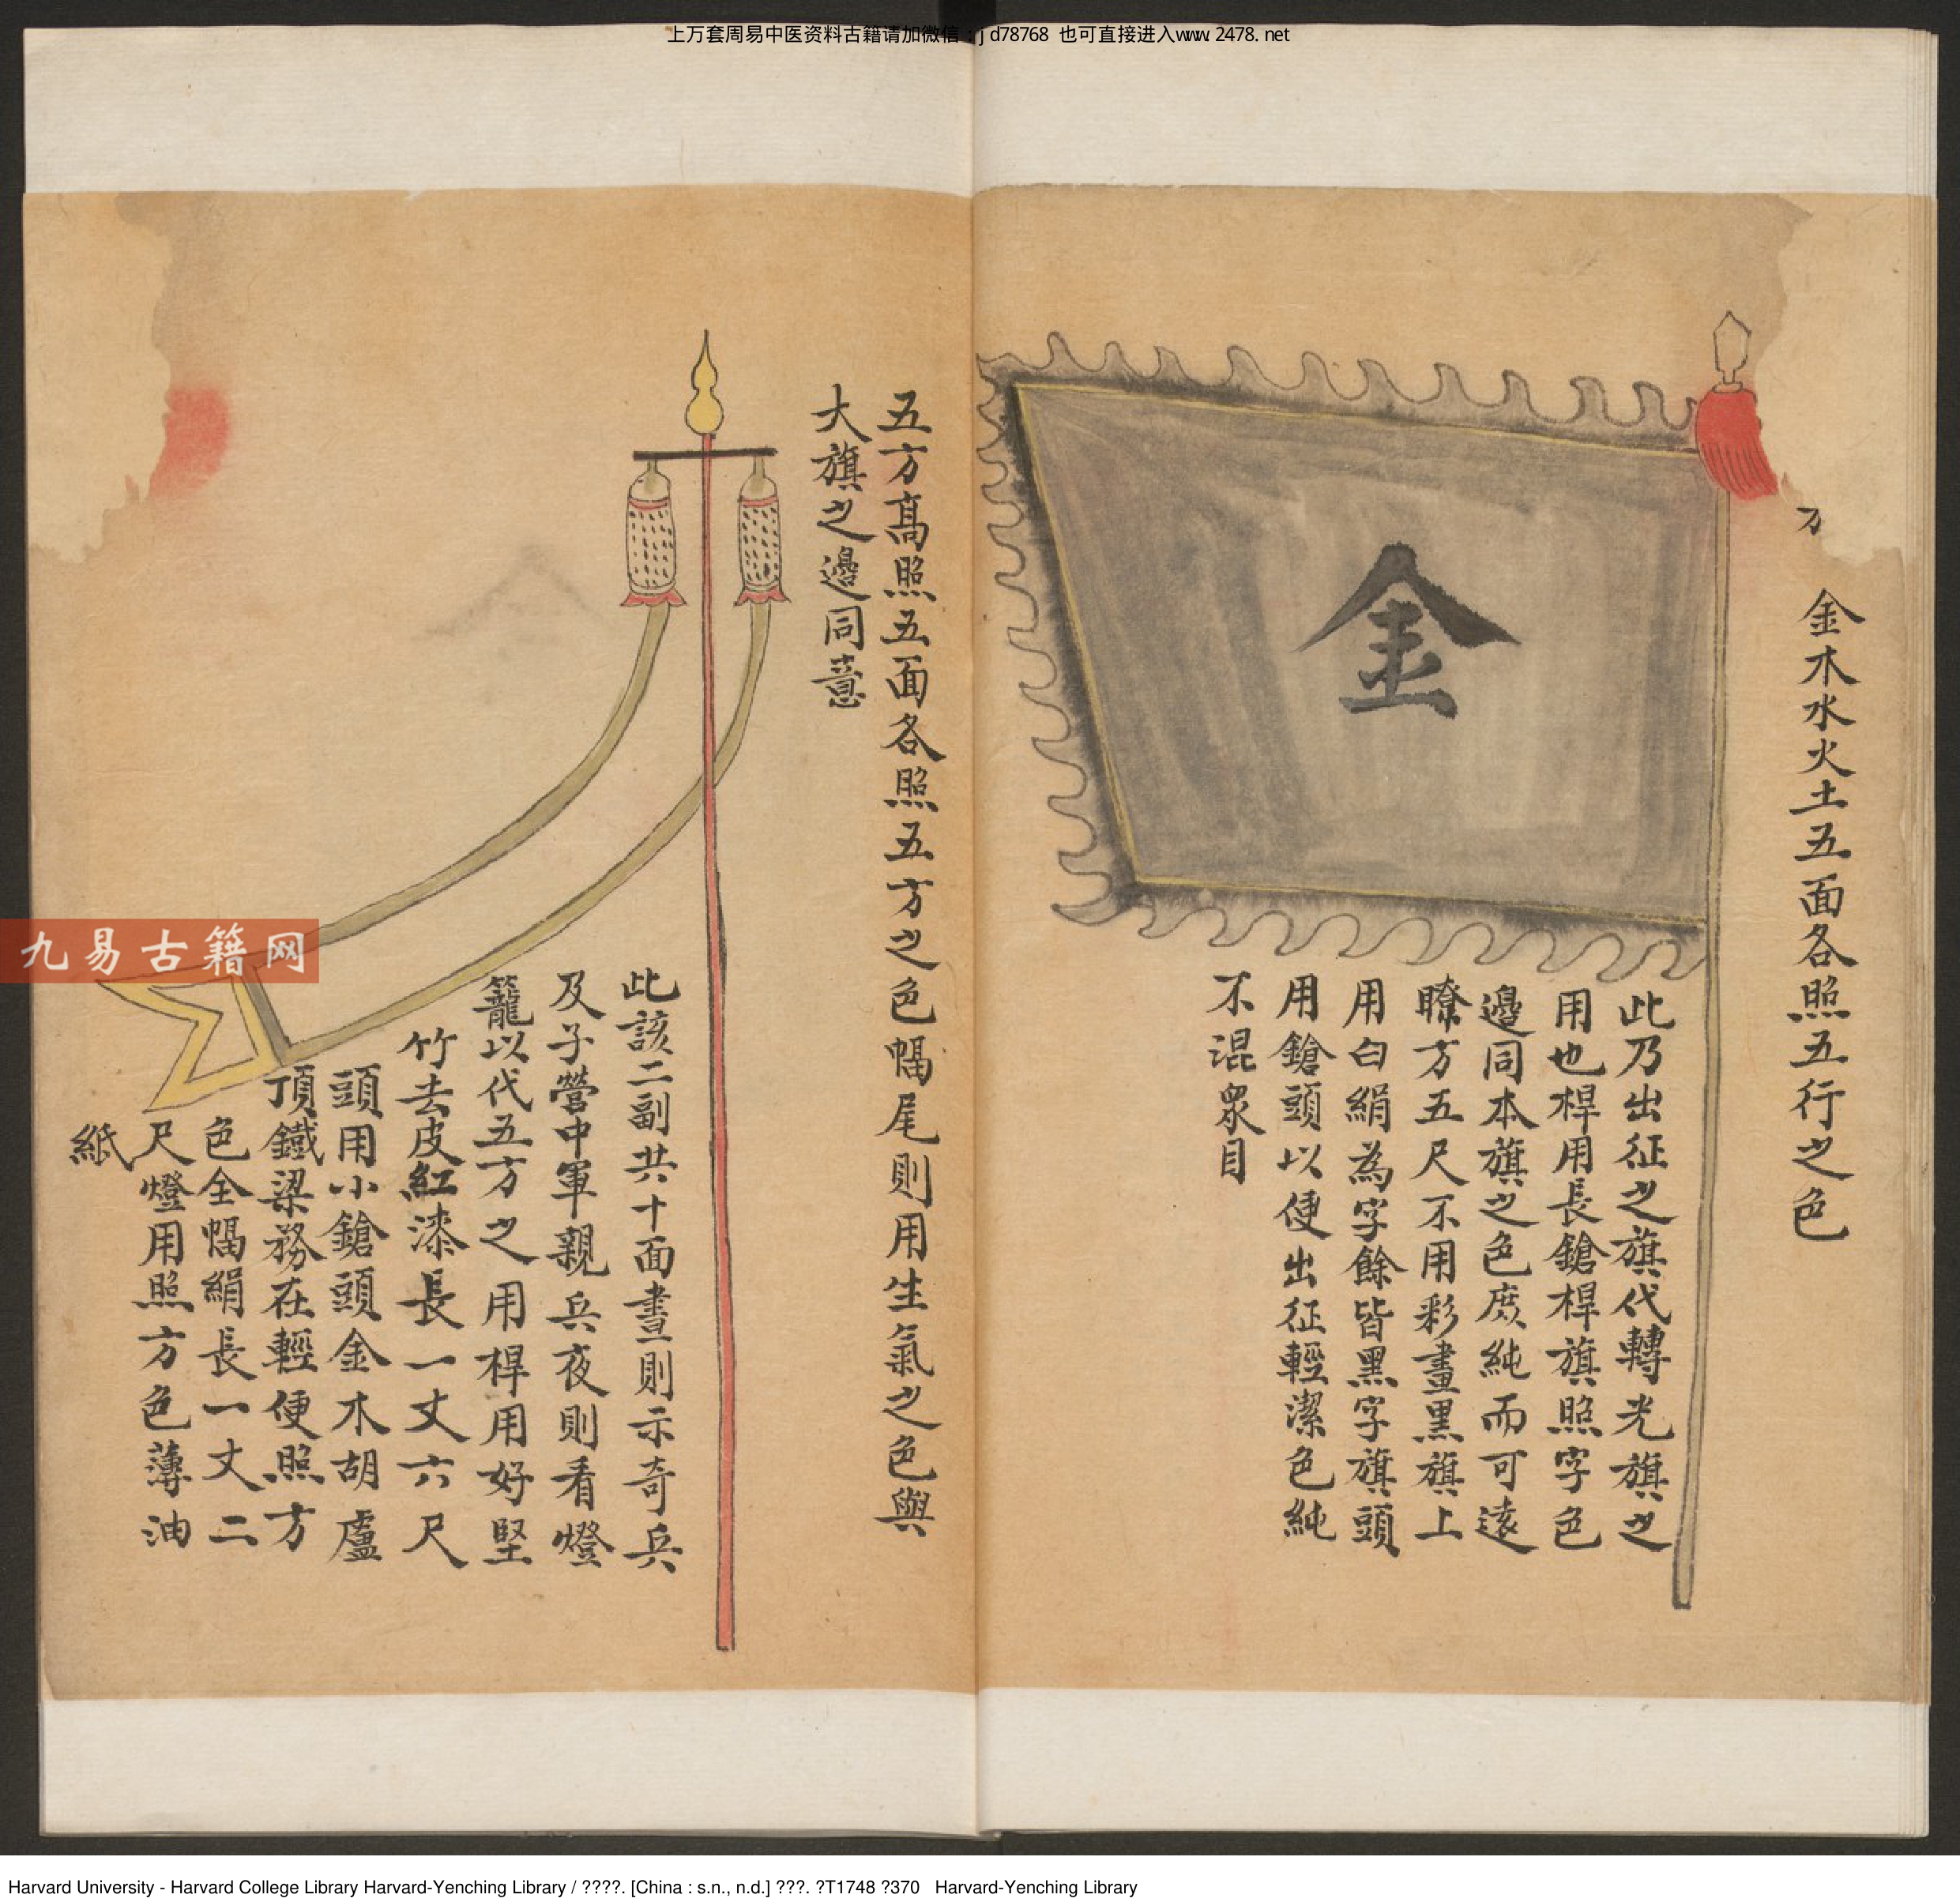 上万套周易中医资料古籍请加微信：jd78768 也可直接进入www.2478.net
金木水火土五面各照五行之色
金
此乃出征之旗代轉光旗之
用也桿用長鎗桿旗照字色
邊同本旗之色庶純而可遠
瞭方五尺不用彩畫黑旗上
用白絹為字餘皆黑字旗頭
用鎗頭以便出征輕潔色純
不混眾目
五方高照五面各照五方之色幅尾則用生氣之色與
大旗之邊同意
此該二副共十面晝則示奇兵
及子營中軍親兵夜則看燈
籠以代五方之用桿用好堅
竹去皮紅漆長一丈六尺
頭用小鎗頭金木胡盧
頂鐵梁務在輕便照方
色全幅絹長一丈二
尺燈用照方色薄油
紙
九易古籍网
Harvard University - Harvard College Library Harvard-Yenching Library / ????. [China : s.n., n.d.] ???. ?T1748 ?370 Harvard-Yenching Library